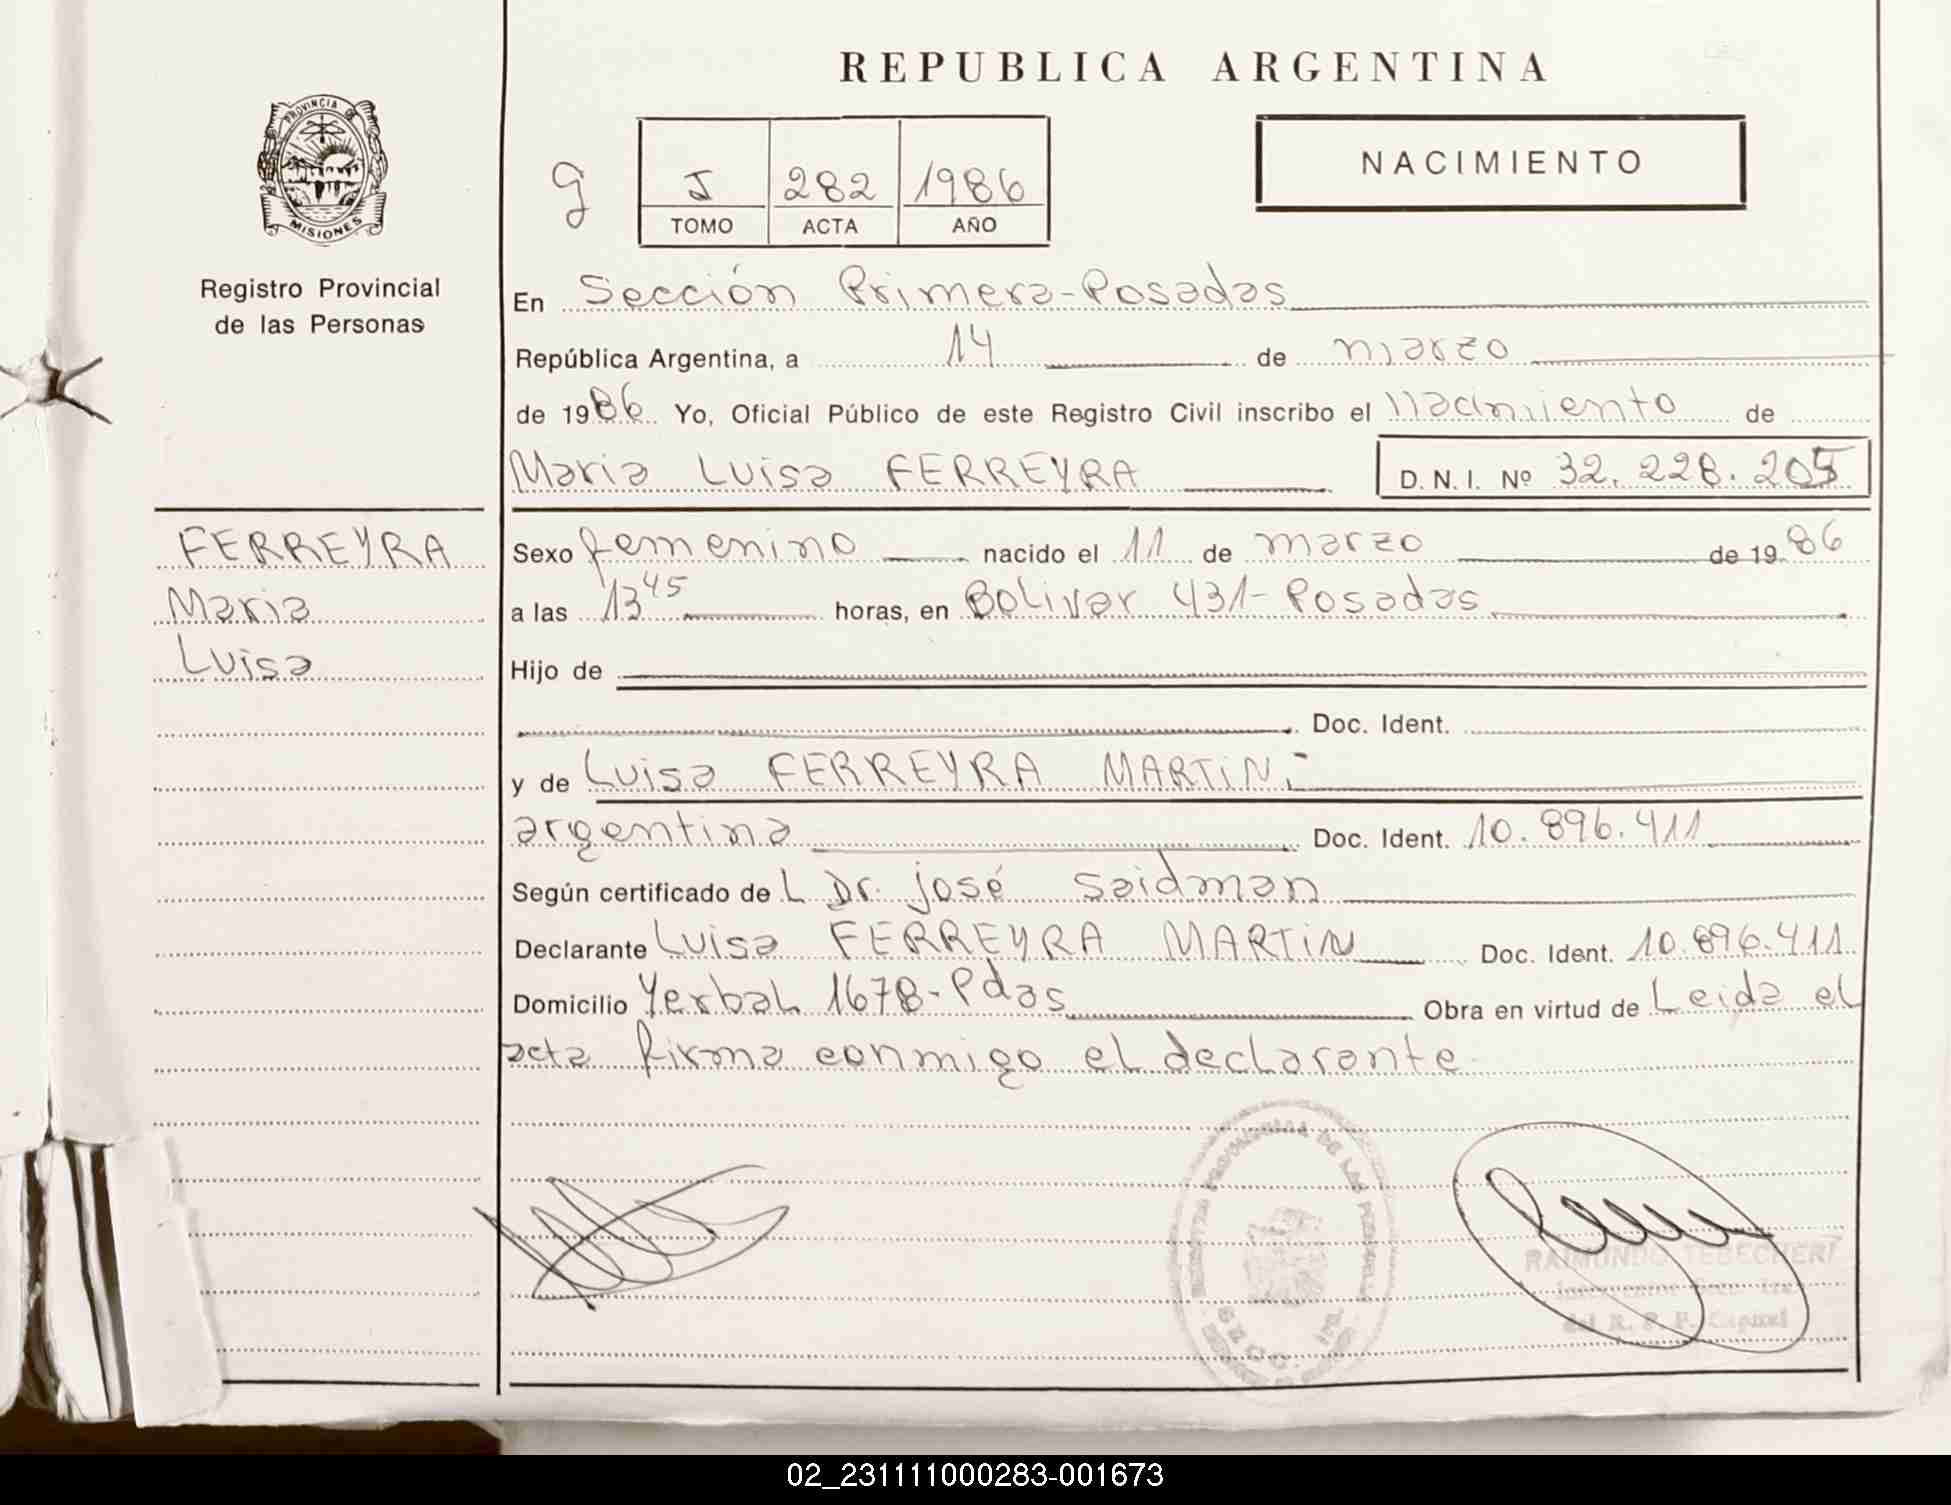 REPUBLICA ARGENTINA
PROVINCIA DE
MISIONES
Registro Provincial
de las Personas
g
J 282 1986
TOMO ACTA AÑO
NACIMIENTO
En Sección Primera-Posadas
República Argentina, a 14 de marzo
de 1986 Yo, Oficial Público de este Registro Civil inscribo el nacimiento de
Maria Luisa FERREYRA D.N.I. Nº 32.228.205
FERREYRA
Maria
Luisa
Sexo femenino nacido el 11 de marzo de 1986
a las 13 45 horas, en Bolivar 431-Posadas
Hijo de
Doc. Ident.
y de Luisa FERREYRA MARTiN;
argentina Doc. Ident. 10.896.411
Según certificado de L Dr. josé Saidman
Declarante Luisa FERREYRA MARTiN Doc. Ident. 10.896.411
Domicilio Yerbal 1678-Pdas Obra en virtud de Leida el
acta firma conmigo el declarante
PROVINCIAL DE LAS PERSONAS
SECC. 1ra.
RAIMUNDO TEBECHERI
del R. P. P. Capital
02_231111000283-001673